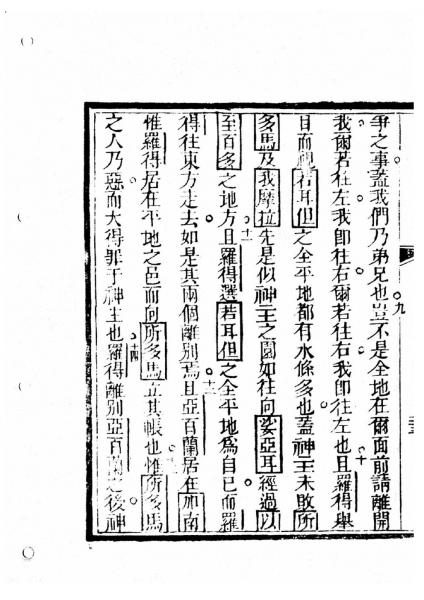 爭之事蓋我們乃弟兄也九豈不是全地在爾面前請離開
我爾若往左我即往右爾若往右我即往左也十且羅得舉
目而視若耳但之全平地都有水條多也蓋神主未敗所
多馬及我摩拉先是似神主之園如往向娑亞耳經過以
至百多之地方十一且羅得選若耳但之全平地為自己而羅
得往東方走去如是其兩個離別焉十二且亞百蘭居在加南
惟羅得居在平地之邑而向所多馬立其帳也十三惟所多馬
之人乃惡而大得罪于神主也十四羅得離別亞百蘭之後神